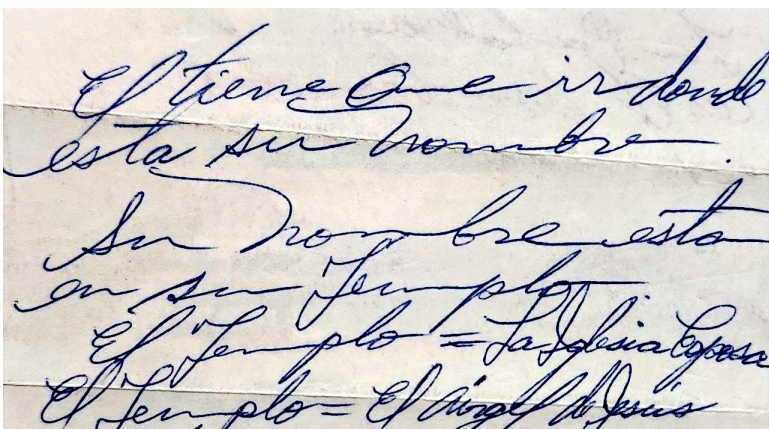 El tiene Que ir donde
esta su nombre.
Su nombre esta
en su Templo.
El Templo = La Iglesia Esposa
El Templo = El Angel de Jesús